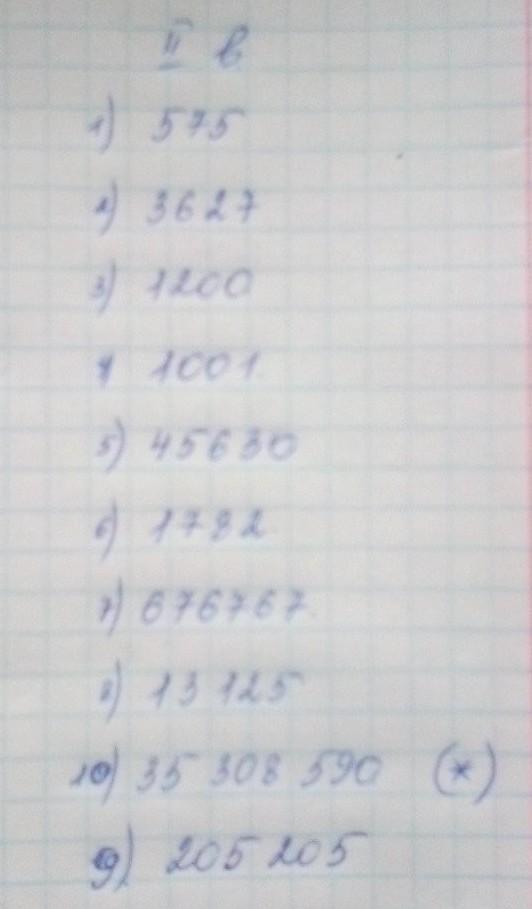 II в
1) 575
2) 3627
3) 1200
4 1001
5) 45630
6) 1782
7) 676767
8) 13 125
10) 35 308 590 (*)
9) 205 205